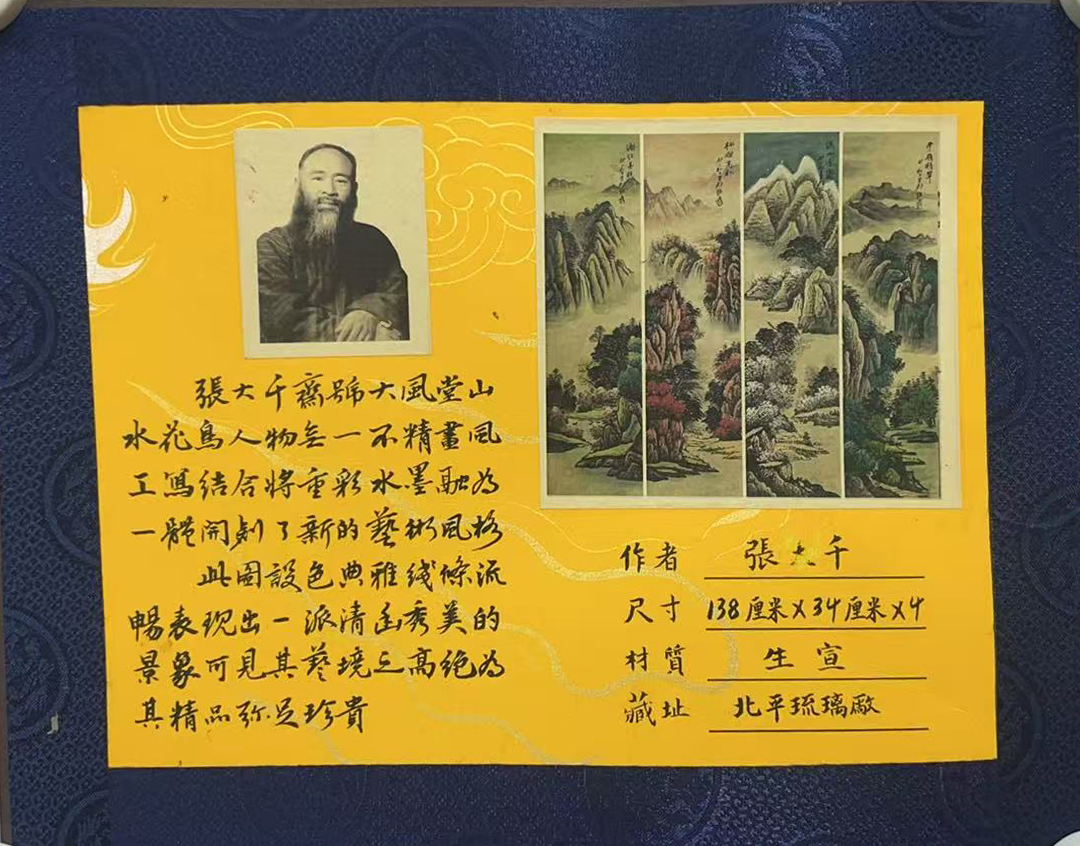 張大千齋號大風堂山
水花鳥人物無一不精畫風
工寫結合將重彩水墨融為
一體開創了新的藝術風格
此圖設色典雅线條流
暢表现出一派清幽秀美的
景象可見其藝境之高絶為
其精品弥足珍貴
作者 張大千
尺寸 138厘米X34厘米X4
材質 生宣
藏址 北平琉璃廠